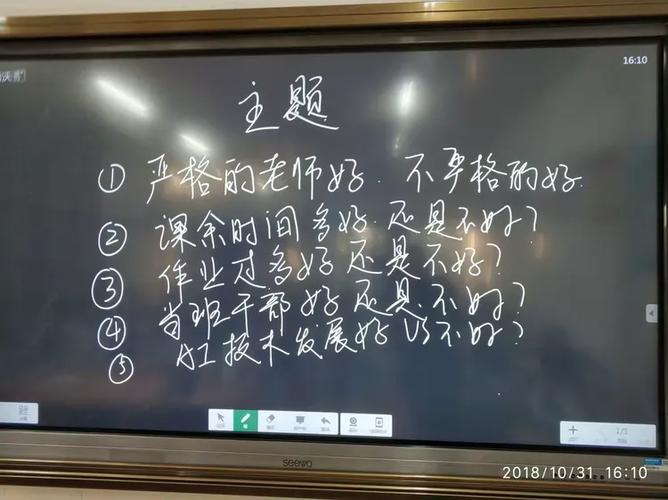 16:10
主题
① 严格的老师好 不严格的好
② 课余时间多好 还是不好？
③ 作业过多好还是不好？
④ 当班干部好还是不好？
⑤ AI技术发展好 VS不好？
1/1
seewo
2018/10/31 16:10